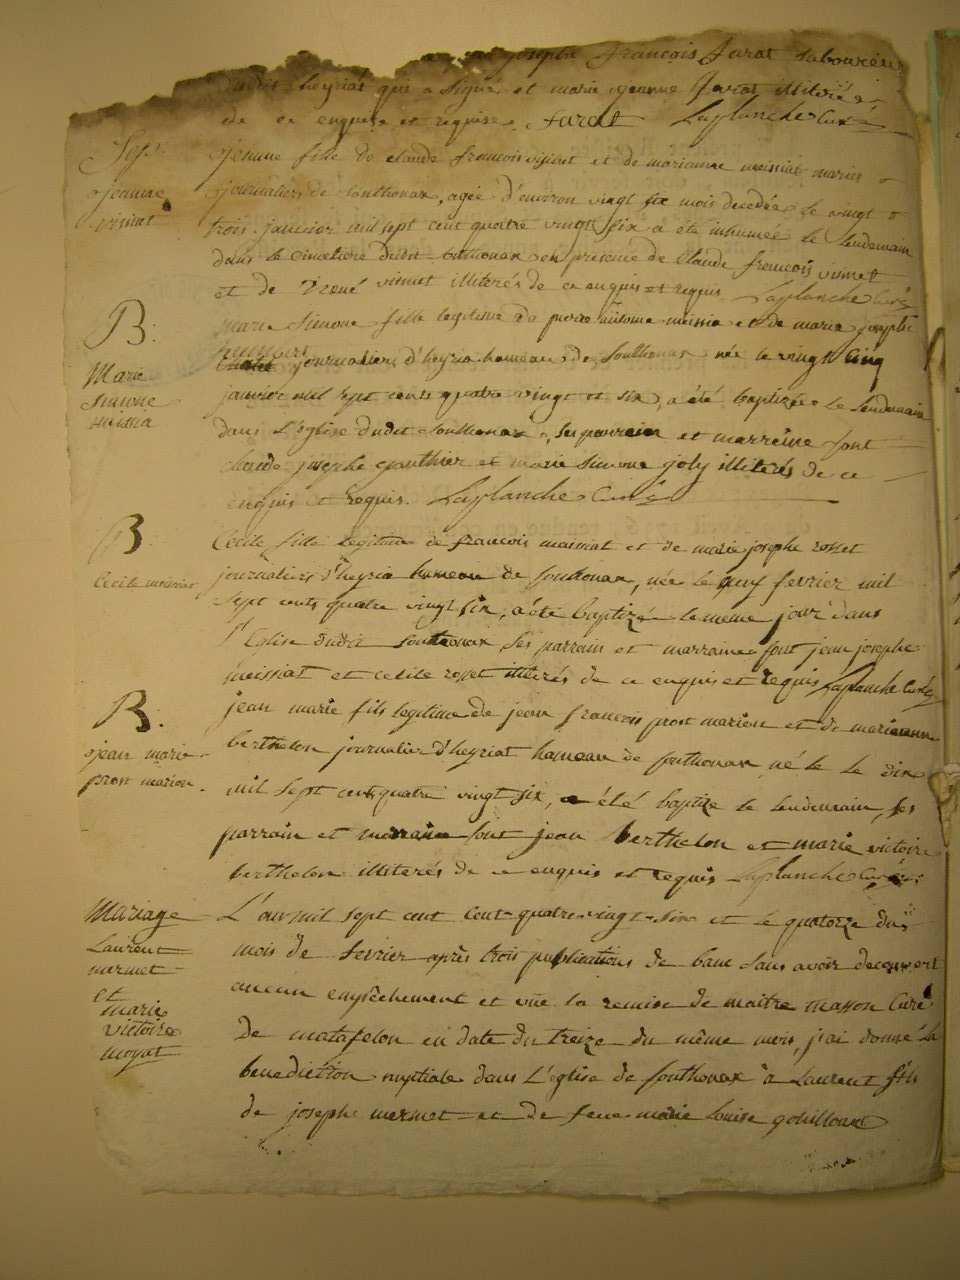 joseph François Jarat laboureur
dudit heyriat qui a signé et marie jeanne Jarat illitérée
de ce enquise et requise. Jarat Laplanche Curé
Sep.
jeanne
vismat
jeanne fille de claude françois vismat et de marianne meissiat mariés
journaliers de Southonax, agée d'environ vingt six mois decedée le vingt
trois janvier mil sept cent quatre vingt six a été inhumée le lendemain
dans le Cimetiere dudit Southonax en présence de Claude françois vismet
et de vismet illiterés de ce enquis et requis Laplanche Curé
B.
Marie
simone
meissia
marie Simone fille legitime de pierre antoine meissia et de marie josephe
journaliers d'heyria hameau de Southonax née le vingt Cinq
janvier mil sept cents quatre vingt et six, a été baptizée le lendemain
dans L'église dudit Southonax, Ses parrain et marreine sont
claude josephe gauthier et marie simone joly illiterés de ce
enquis et requis. Laplanche Curé
B.
Cecile meissiat
Cecile fille legitime de françois meissiat et de marie josephe rosset
journaliers d'heyria hameau de Southonax, née le neuf fevrier mil
Sept cents quatre vingt six, a été baptizé le meme jour dans
l'Eglise dudit Southonax Ses parrain et marraine sont jean josephe
meissiat et cecile rosset illiterés de ce enquis et requis Laplanche Curé
B.
jean marie
prost marion.
jean marie fils legitime de jean françois prost marion et de marianne
berthelon journalier d'heyriat hameau de Southonax né le le dix
mil sept cents quatre vingt six, a été baptize le lendemain, ses
parrain et marraine sont jean berthelon et marie victoire
berthelon illiterés de ce enquis et requis Laplanche Curé
Mariage
Laurent
mermet
et
marie
victoire
moyat
L'an mil sept cent cent quatre vingt six et le quatorze du
mois de fevrier après trois publications de banc sans avoir decouvert
aucun empêchement et vüe la remise de maitre masson Curé
de matafelon en date du treize du même mois, j'ai donné la
benediction nuptiale dans L'église de Southonax à Laurent fils
de josephe mermet et de feue marie Louise gouilloux